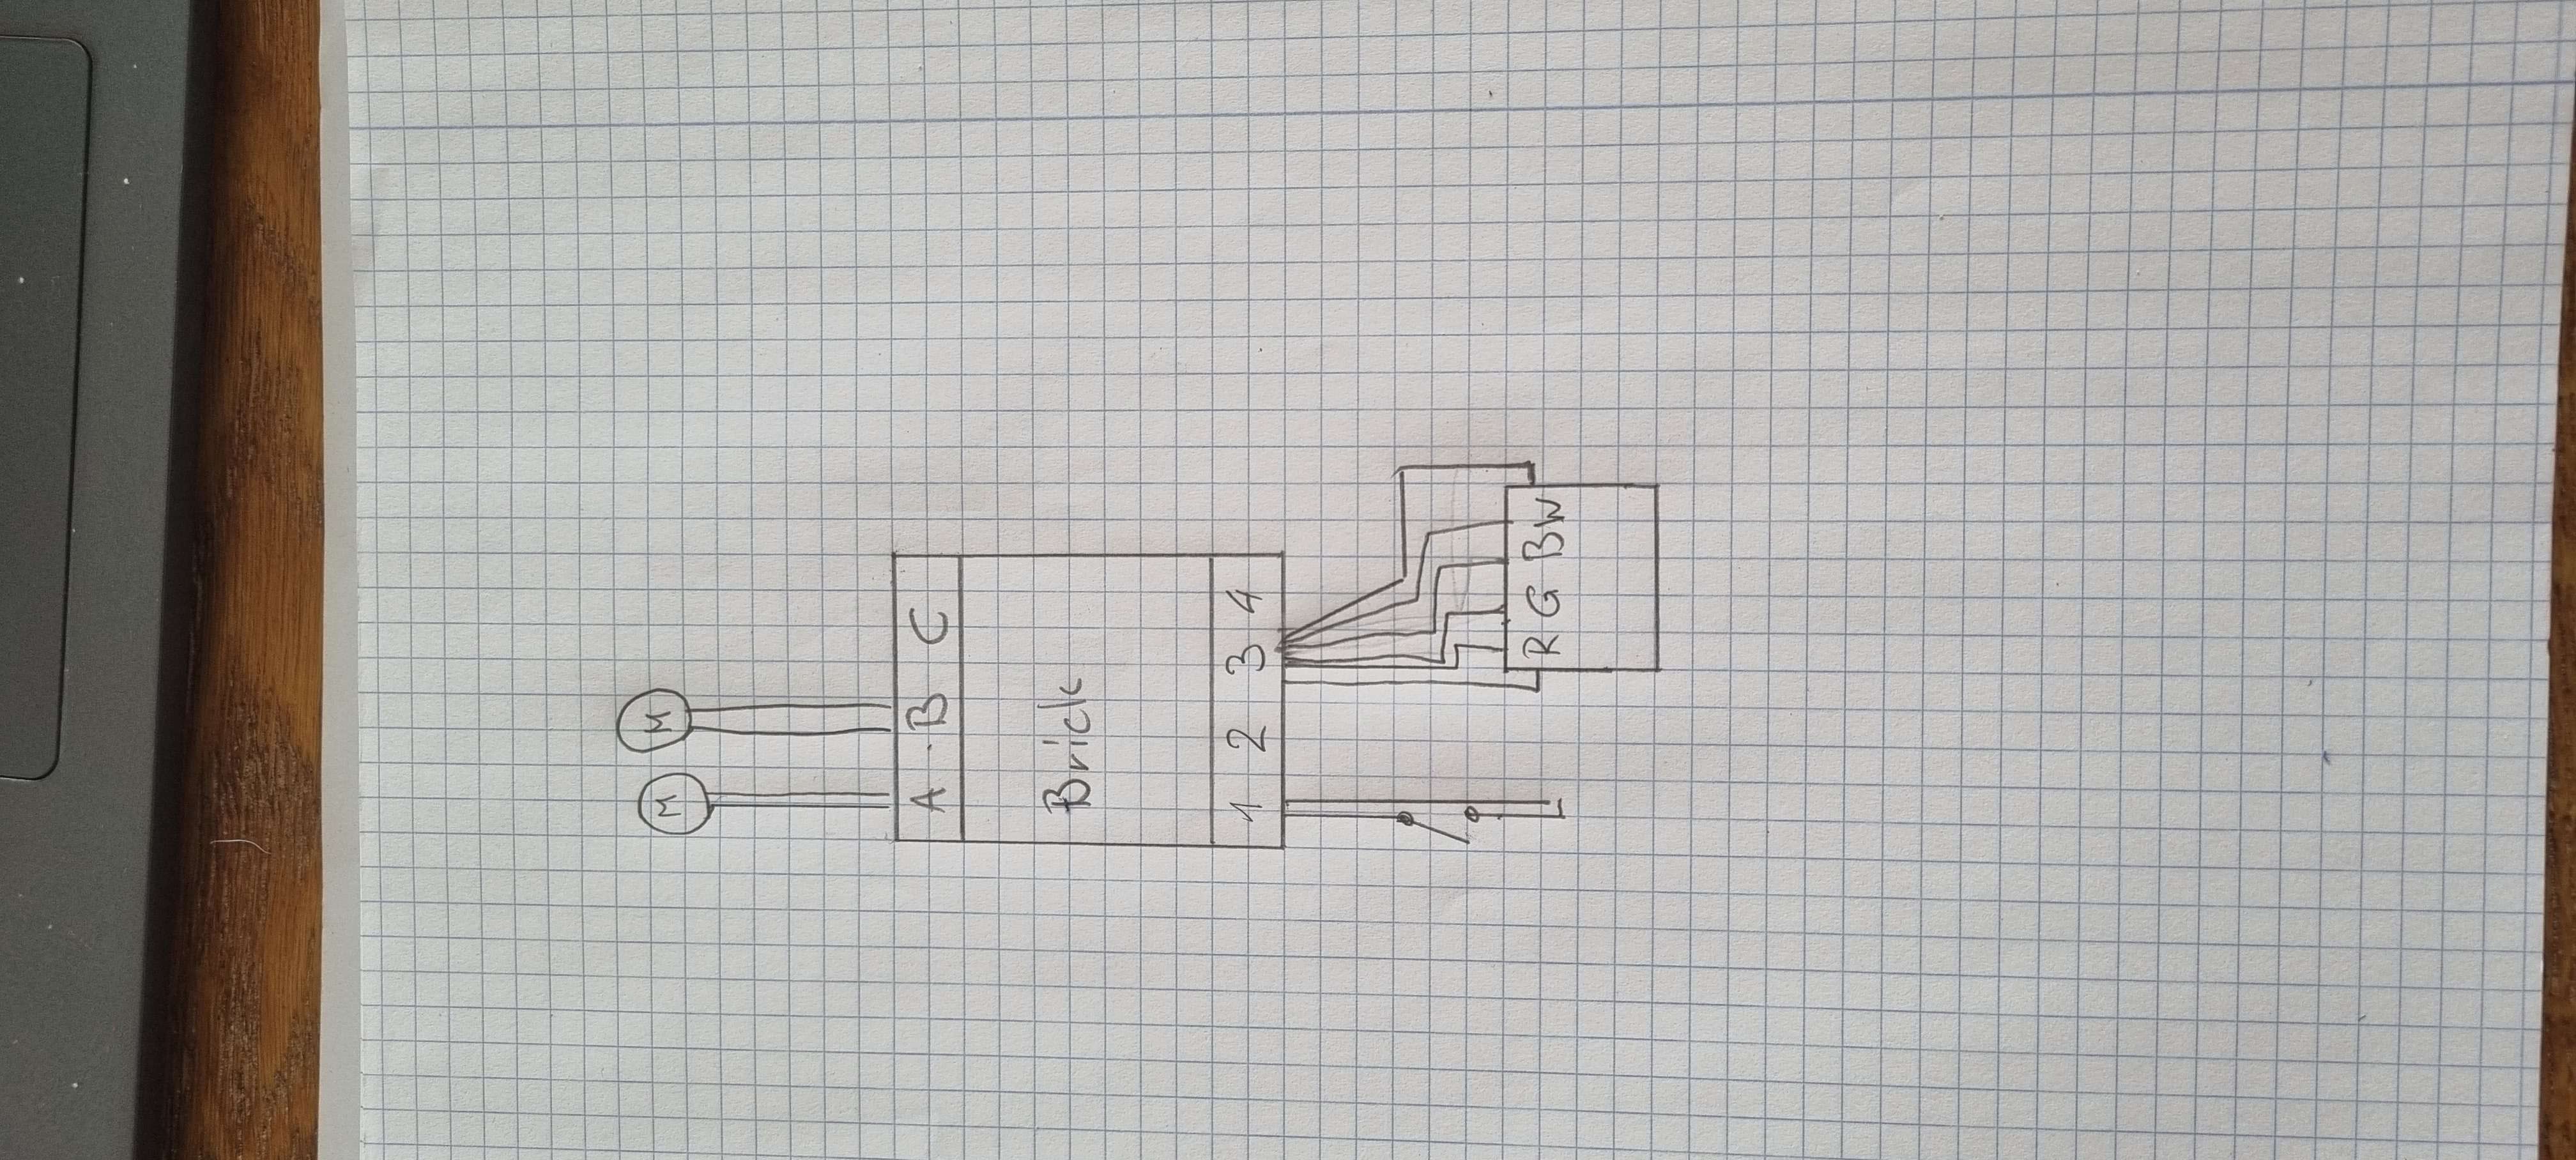 M M
A B C
Brick
1 2 3 4
R G B W